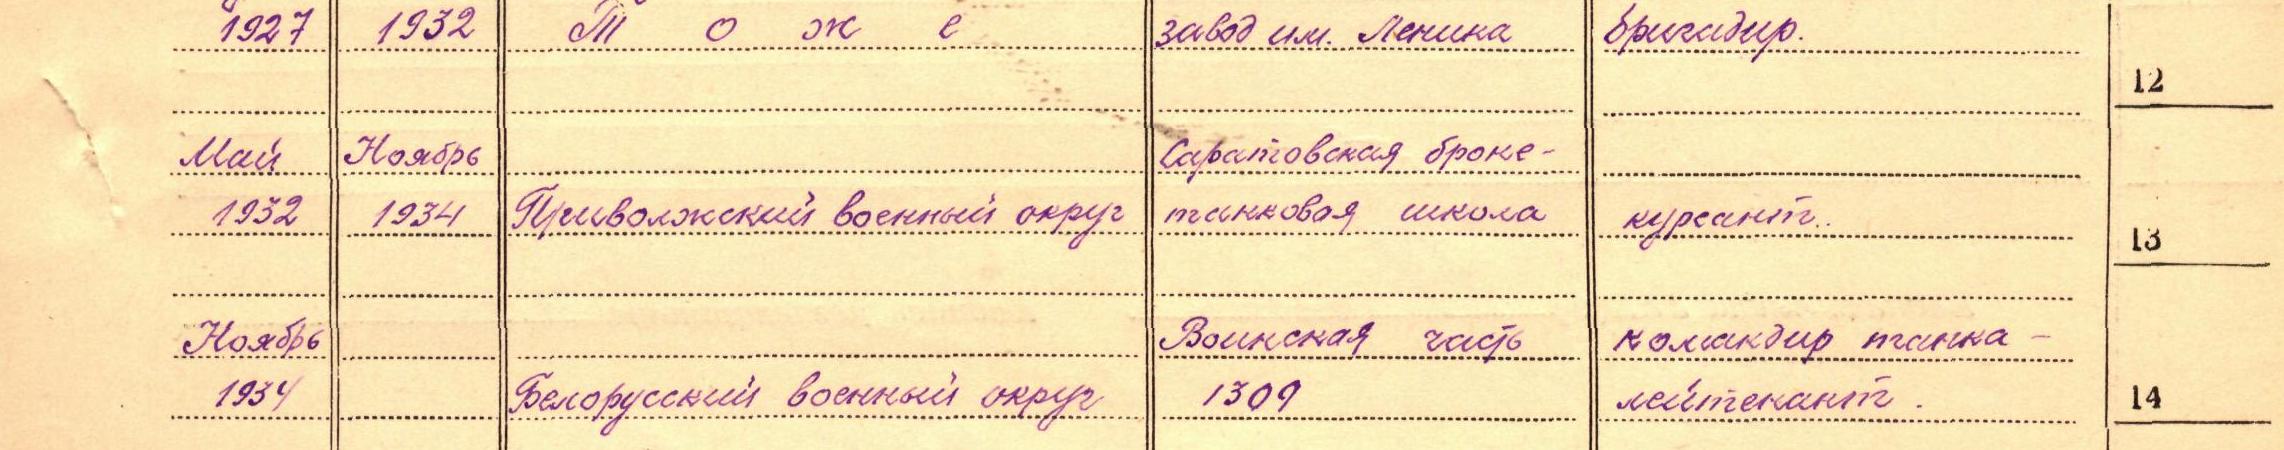 1927 1932 То же завод им. Ленина бригадир.
12
Май Ноябрь Саратовская броне-
1932 1934 Приволжский военный округ танковая школа курсант..
13
Ноябрь Воинская часть командир танка -
1934 Белорусский военный округ 1309 лейтенант.
14